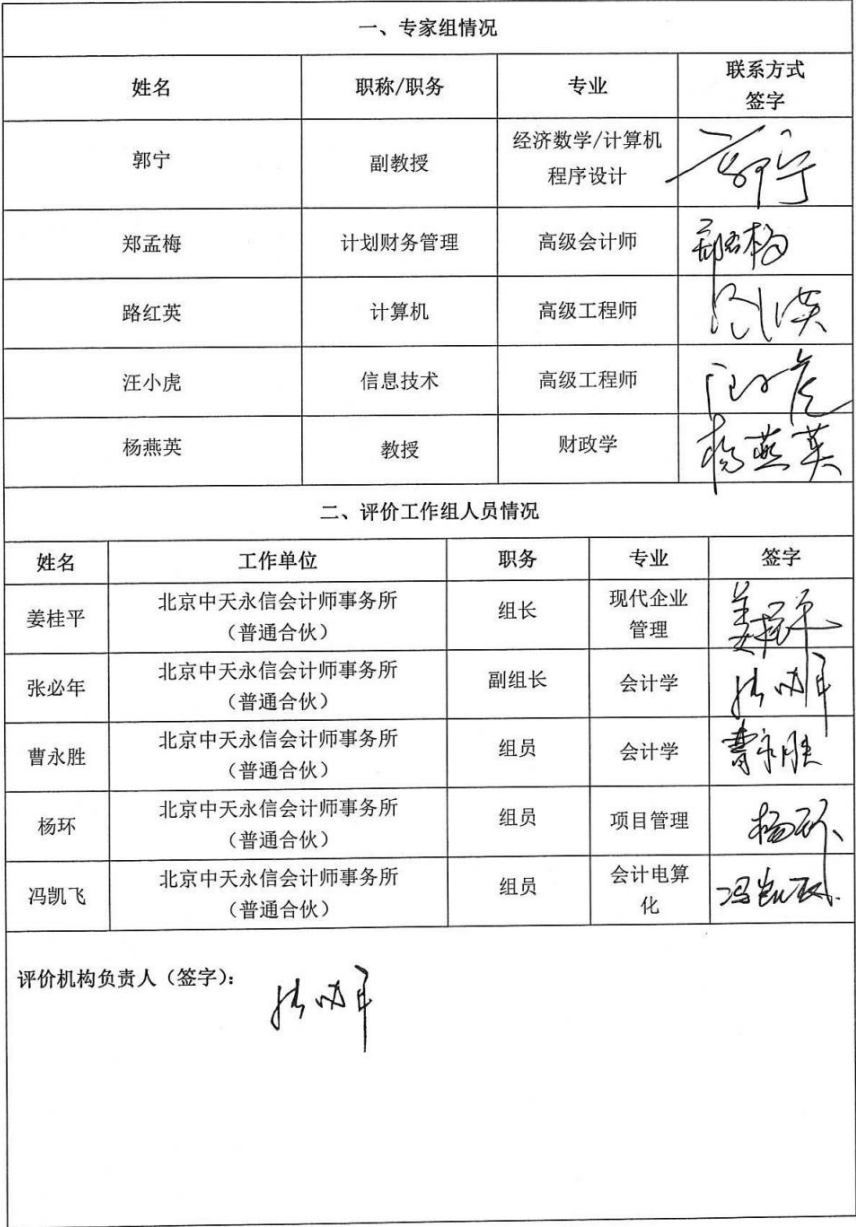 一、专家组情况
姓名 职称/职务 专业 联系方式
签字
郭宁 副教授 经济数学/计算机
程序设计 郭宁
郑孟梅 计划财务管理 高级会计师
路红英 计算机 高级工程师
汪小虎 信息技术 高级工程师 汪小虎
杨燕英 教授 财政学 杨燕英
二、评价工作组人员情况
姓名 工作单位 职务 专业 签字
姜桂平 北京中天永信会计师事务所
（普通合伙） 组长 现代企业
管理 姜桂平
张必年 北京中天永信会计师事务所
（普通合伙） 副组长 会计学 张必年
曹永胜 北京中天永信会计师事务所
（普通合伙） 组员 会计学 曹永胜
杨环 北京中天永信会计师事务所
（普通合伙） 组员 项目管理 杨环
冯凯飞 北京中天永信会计师事务所
（普通合伙） 组员 会计电算
化 冯凯飞
评价机构负责人（签字）： 张必年